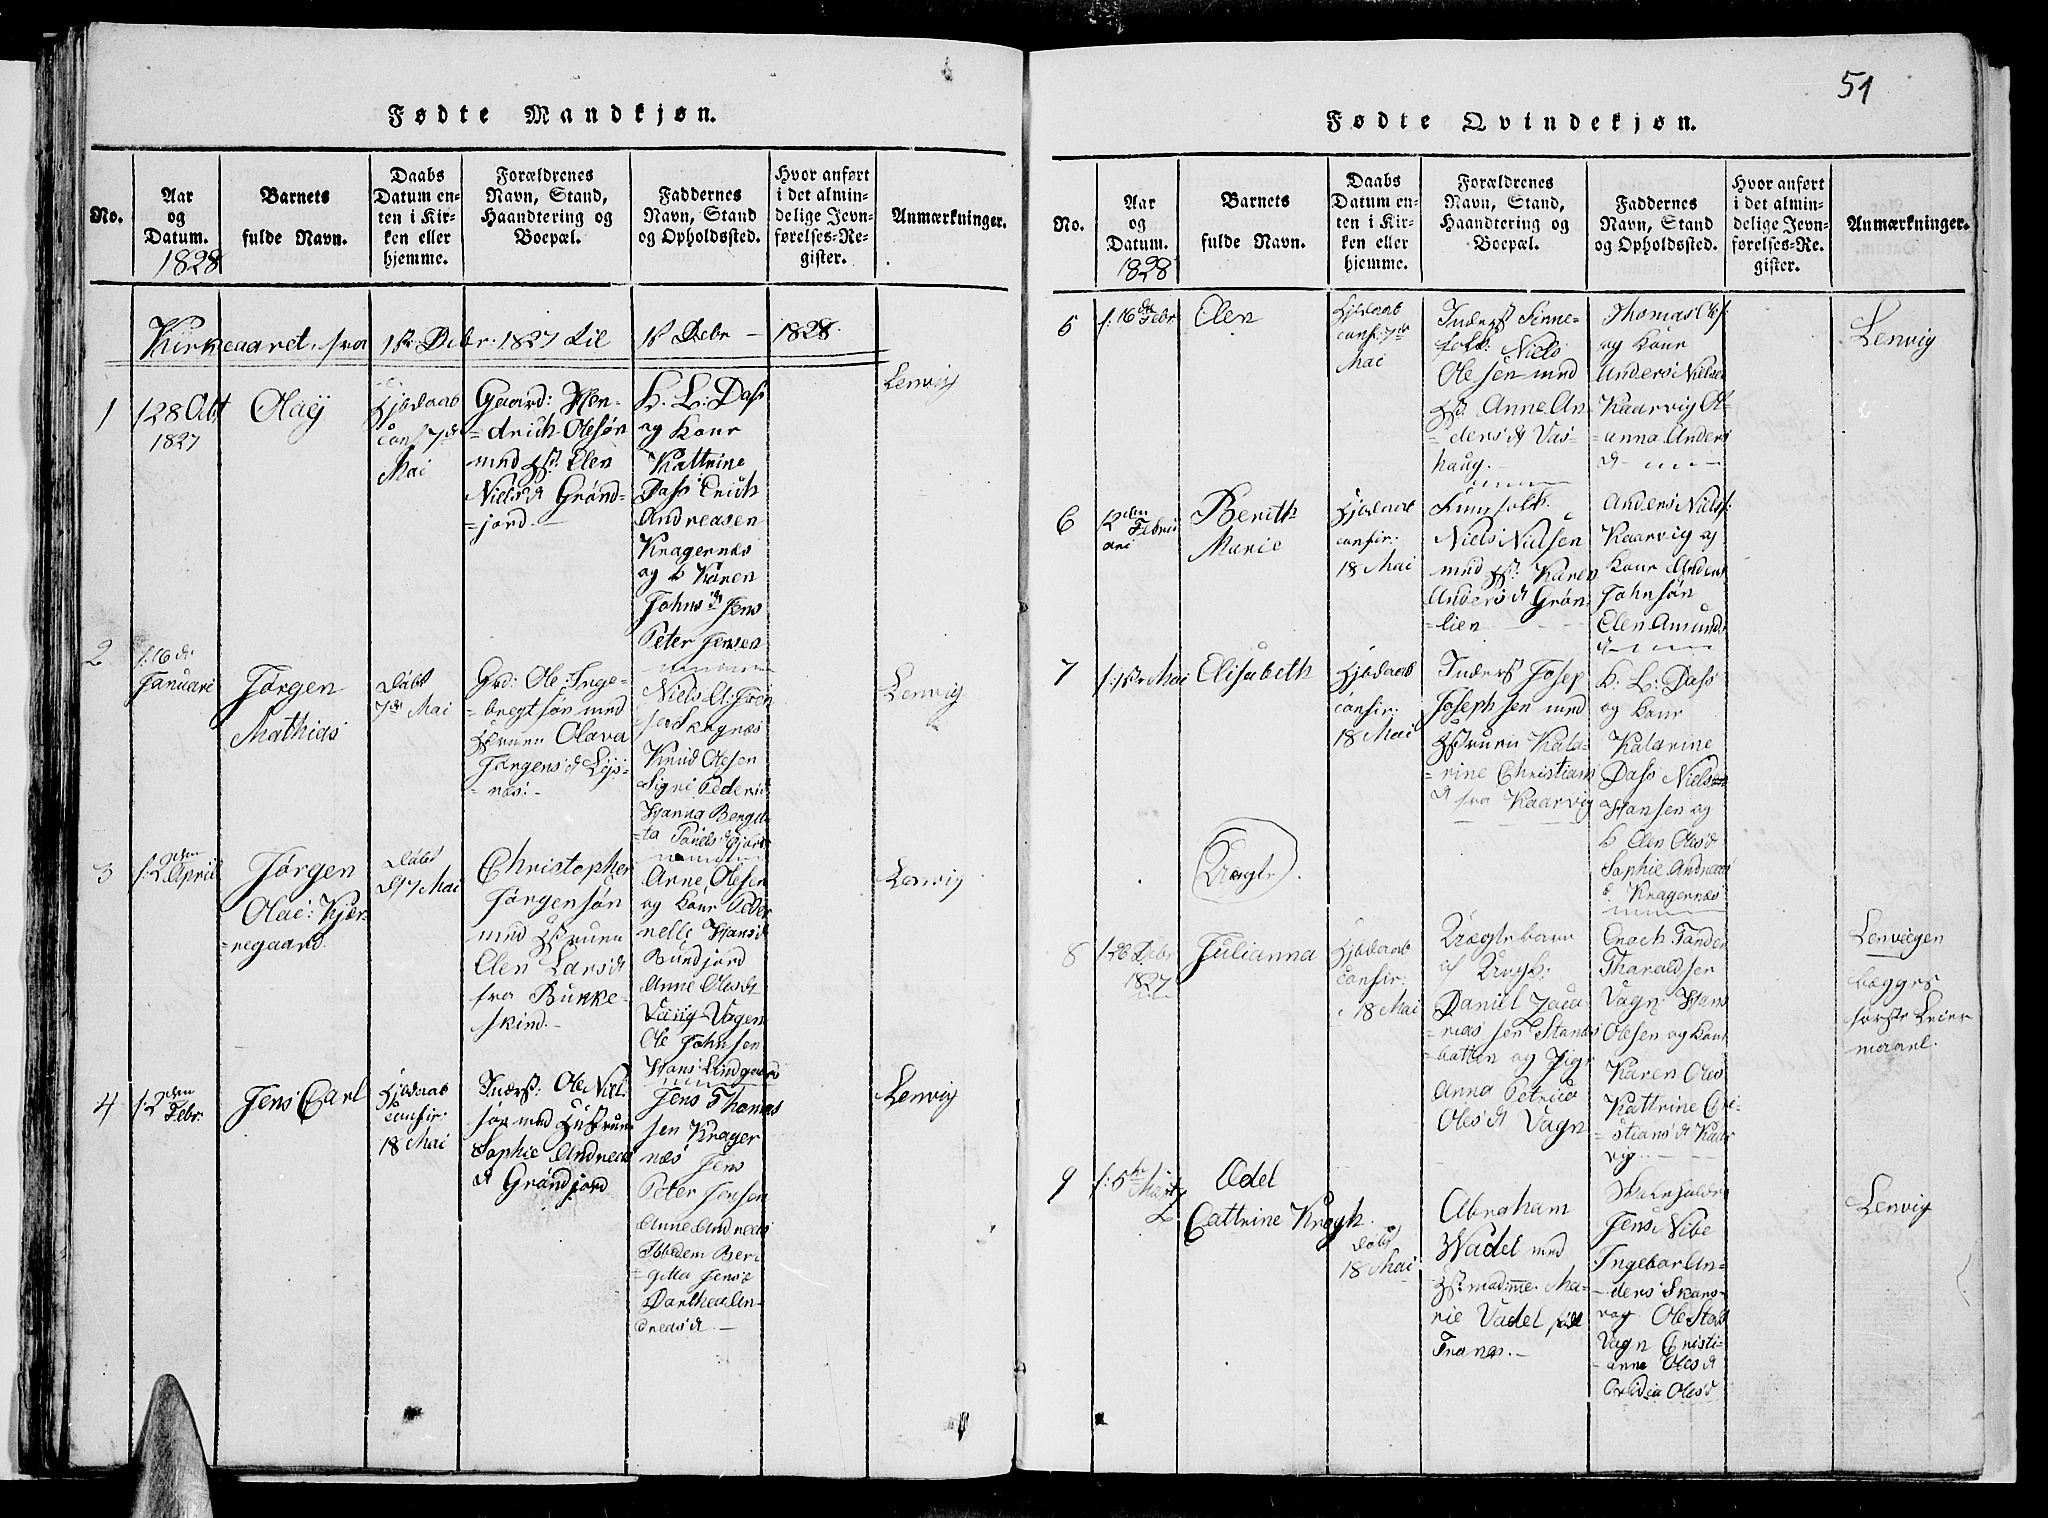 Fødte Mandkjøn.
No.
Aar
og
Datum.
1828
Barnets
fulde Navn.
Daabs
Datum en-
ten i Kir-
ken eller
hjemme.
Forældrenes
Navn, Stand,
Haandtering og
Boepæl.
Faddernes
Navn, Stand
og Opholdssted.
Hvor anført
i det almin-
delige Jevn-
førelses-Re-
gister.
Anmærkninger.
Kirkeaaret fra 1st Debr: 1827 til 1st Debr 1828
1
f 28 Obt
1827
Olaij
Hjdaab
conf 7d
Mai
Gaard: Hen-
=drich Olesøn
med Hst: Elen
Niels d Grønd-
=jord.
H. L: Dass
og Kone
Kattrine
Dass Erich
Andreasen
Kragernæs
og K Karen
Johns d Jens
Peter Jensen
Lenvig
2
f. 16 d
Januari
Jørgen
Mathias
Døbt
7d Mai
Grd: Ole Inge-
=bregtsøn med
Hstruen Olava
Jørgens d Lys-
=næs.-
Niels
Skognæs
Knud Olesen
Signe Peders
Hanna Bengt
Lenvig
3
f. 2den April
Jørgen
Olai: Kjer-
=negaard
Døbt
d 7 Mai
Christopher
Jørgensøn
med Hstruen
Elen Lars d
fra Bukke-
skind.-
Arne Olesen
og Kone Peder
nelle Hans d
Rundfjord
Anne Oles d
Vang Vagen
Ole Johnsen
Hans Lindgaard
Lenvig
4
f. 2den
Febr.
Jens Carl
Hjdaab
confir.
18 Mai
Inderst: Ole Niel
søn med Hustruen
Sophie Andreas
d Grøndjord
Jens Thomas
sen Krager
næs Jens
Peter Jensen
Anne Andreas
Ibidem Beri
=gitta Jens d
Darthea An-
dreas d.-
Lenvig
51
Fødte Qvindekjøn.
No.
Aar
og
Datum.
1828
Barnets
fulde Navn.
Daabs
Datum en-
ten i Kir-
ken eller
hjemme.
Forældrenes
Navn, Stand,
Haandtering og
Boepæl.
Faddernes
Navn, Stand
og Opholdssted.
Hvor anført
i det almin-
delige Jevn-
førelses-Re-
gister.
Anmærkninger.
5
f. 16de Febr
Elen
Hjdaab
conf: 7de
Mai
Inderst Finne-
folk: Niels
Olesen med
Hst: Anne An-
=ders d Vas-
haug.-
Thomas Ols:
og Kone
Anders Nielsen
Kaarvig Ol-
=anna Anders
d
Lenvig
6
12den Febru
ari
Berith
Marie
Hjdaab
confir:
18 Mai
Finnfolk.
Niels Nielsen
med Hst: Karen
Anders d Grøn-
lien
Anders Niels:
Kaarvig og
Kone Anders
Johnsøn
Elen Amunds
d
7
f. 1ste Mai
Elisabeth
Hjdaab
confir.
18 Mai
Inderst Josep
Josephsen med
Hstruen Kata-
=rine Christians
d fra Kaarvig
H. L: Dass
og Kone
Katarine
Dass Niels
Hansen og
K Elen Oles d
Sophie Andreas
d Kragernæs
Uægte.
8
f. 26 Debr
1827
Julianna
Hjdaab
confir.
18 Mai
Uægtebarn
af Ungk:
Daniel Zaca
=rias sen Stands
=batten og Pige
Anna Petrica
Oles d Vagn
Enoch Tander
Tharaldsen
Vagn Hans
Olesen og Kone
Karen Oles
Kattrine Cri-
=stians d Kaar
vig.
Lenvigen
begges
første Leier
maal.
9
f. 5te Marty
Ædel
Cattrine Krogh.
Døbt
18 Mai
Abraham
Wadel med
Hst: madme. Ma-
rie Vadel født
Tranes.-
Skibsholder
Jens Nibe
Ingebor An-
=ders Skars-
vog Ole Stod
Vagn Cristi-
=anne Oles d
Oridia Oles d
Lenvig